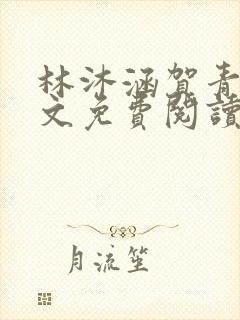 林沐涵賀青
文免費閱讀
月流笙